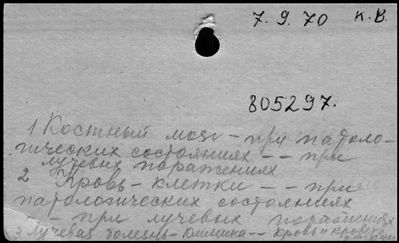 7.9.70 К.В.
805297.
1 Костный мозг - при патоло-
гических состояниях -- при
лучевых поражениях
2 Кровь-клетки -- при
патологических состояниях
- при лучевых поражениях
3 Лучевая болезнь-клиника-- Кровь и